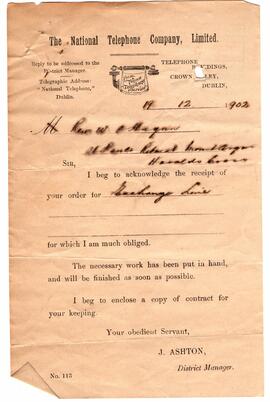 The National Telephone Company, Limited.
Reply to be addressed to the
District Manager.
Telegraphic Address:
"National Telephone,"
Dublin.
TELEPHONE
BUILDINGS,
CROWN
DUBLIN,
19 12 1902
Rev. W.
Harolds Cross
SIR,
I beg to acknowledge the receipt of
your order for Exchange Line
for which I am much obliged.
The necessary work has been put in hand,
and will be finished as soon as possible.
I beg to enclose a copy of contract for
your keeping.
Your obedient Servant,
J. ASHTON,
District Manager.
No. 113